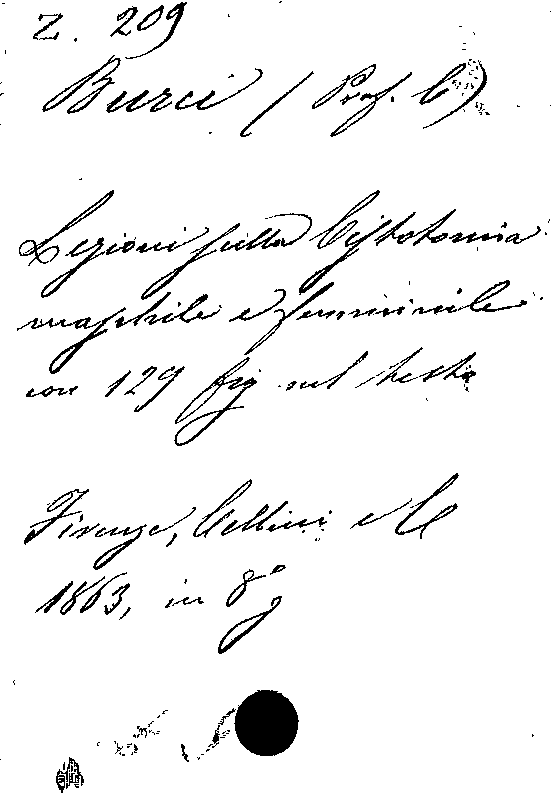 Z. 209
Burci (Prof. C)
Lezioni sulla Cistotomia
maschile e femminile
con 129 fig nel testo
Firenze, Cellini e C
1863, in 8º